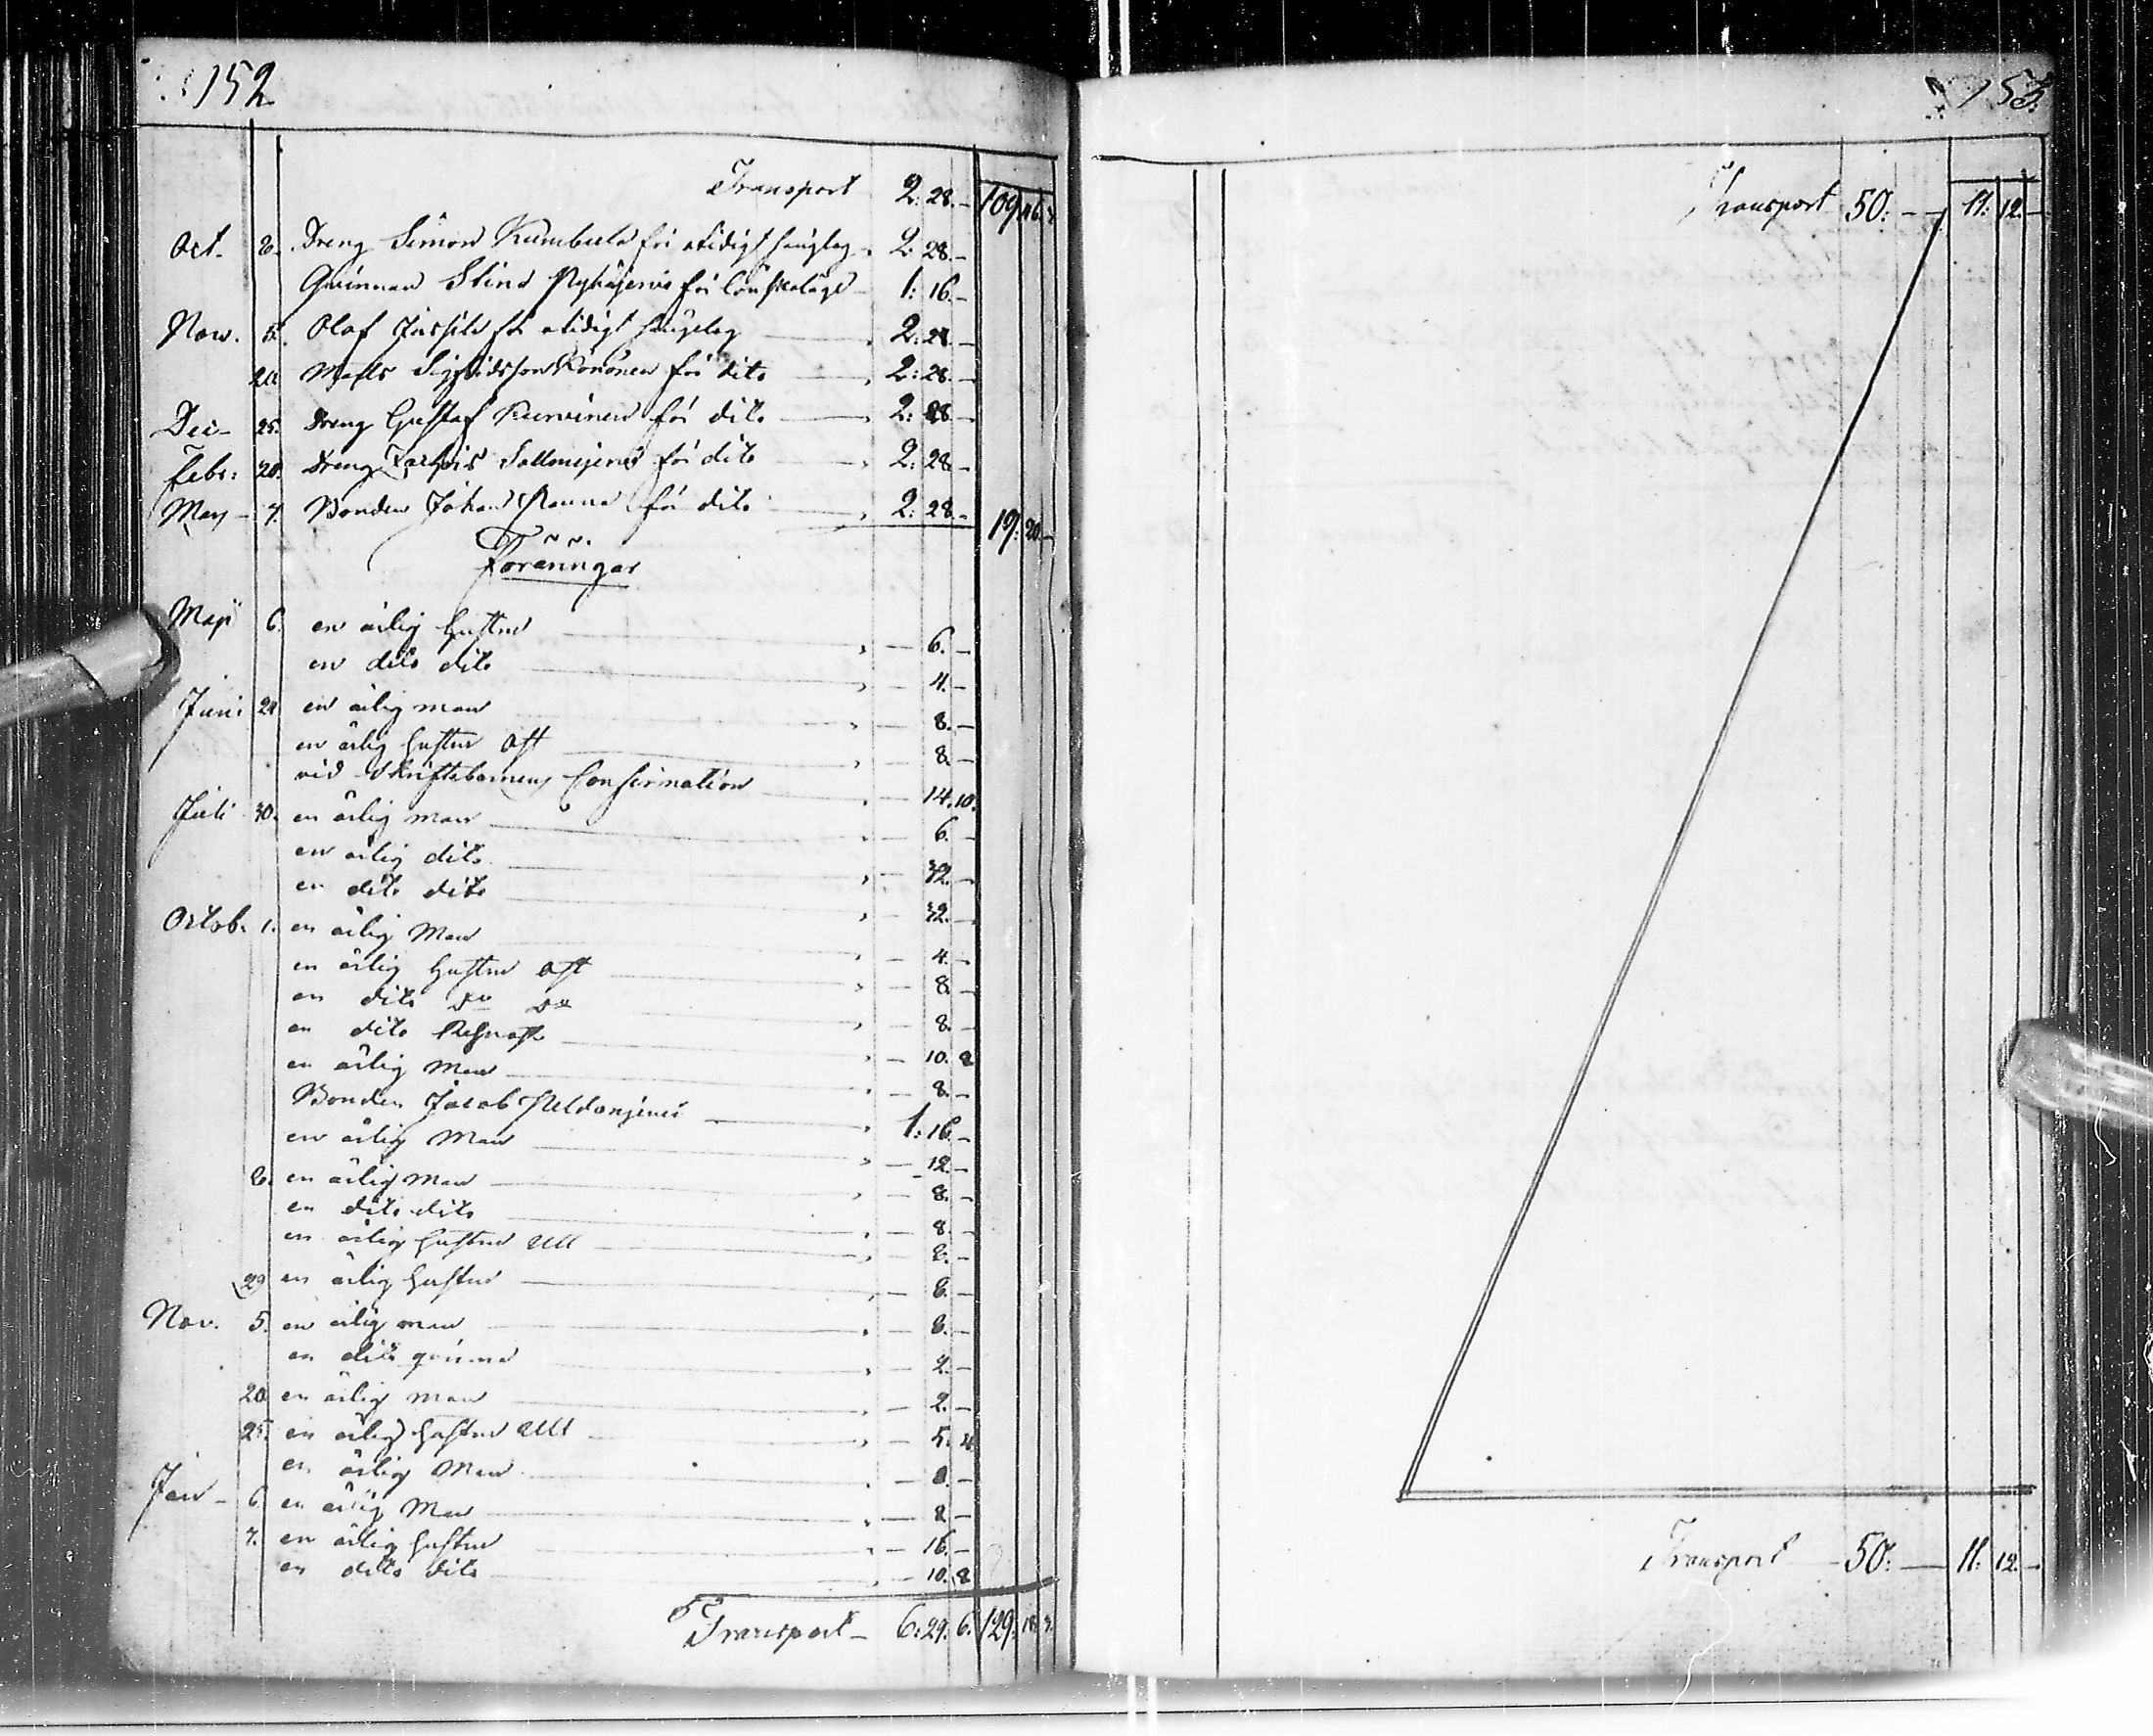 152
Transport 2: 28. – 109. 46.
Oct. 8. Dreng Simon för otidigt sängelag 2. 28. –
Qvinnan Stina för Lönskaläge 1: 16. –
Nov. 5. Olof för otidigt sängelag 2: 28. –
20 Matts Sigfridsson Kononen för dito 2: 28. –
Dec – 25. Dreng Gustaf Kurvinen för dito 2: 28 –
Febr: 20. Dreng för dito 2: 28 –
May – 7. Bonden Johan för dito 2: 28. – 19. 20. –
Föräringar
Maji 6. en ärlig hustru – 6. –
en dito dito – 4. –
Juni 24 en ärlig man – 8. –
en ärlig hustru Ost – 8. –
vid Skriftebarnens Confirmation – 14. 10.
Juli 30. en ärlig man – 6. –
en ärlig dito – 32. –
en dito dito – 32. –
Octob. 1. en ärlig Man – 4. –
en ärlig hustru Ost – 8. –
en dito Do Do – 8. –
en dito – 10. 8
en ärlig Man – 8. –
Bonden Jacob 1: 16. –
en ärlig Man – 12. –
8. en ärlig Man – 8. –
en dito dito – 8. –
en ärlig hustru Ull – 8. –
29 en ärlig hustru – 8. –
Nov. 5. en ärlig man – 8. –
en dito qvinna – 2. –
20 en ärlig man – 2. –
25. en ärlig hustru Ull – 5. 4
en ärlig Man – 8. –
Jan – 6. en ärlig Man – 8 –
7. en ärlig hustru – 16. –
en dito dito – 10. 8
Transport – 6: 29. 6. 129. 18.
153.
Transport 50: – – 11: 12. –
Transport – 50: – 11: 12. –